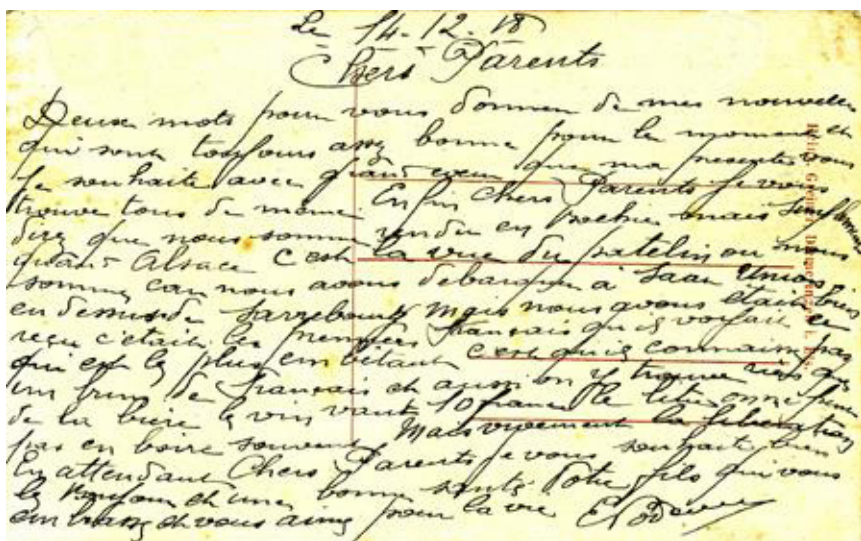 Le 14-12-18
Chers Parents
Deux mots pour vous donner de mes nouvelles
qui sont toujours assez bonne pour le moment et
je souhaite avec grand coeur que ma presente vous
trouve tous de meme. Enfin Chers Parents je vous
dire que nous somme rendu en mais
quand Alsace C'est la vue du patelin ou nous
somme car nous avons debarquer à Saar Union
en dessus de Sarrebourg mais nous avons était bien
recu c'était les premiers français qu'ig voyait ce
qui est le plus embetant c'est qu'ig connaisse pas
un brun de français et aussi on y trouve rien que
de la biere le vin vaut 10 francs le litre on ne peux
pas en boire souvent Mais vivement la liberation
En attendant Chers Parents je vous souhait bien
le bonjour et une bonne santé Votre fils qui vous
embrasse et vous aime pour la vie